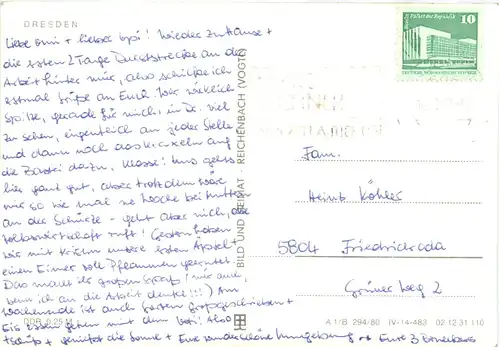 DRESDEN
Liebe Omi + lieber Opi! Wieder zu Hause +
die ersten 2 Tage Durststrecke an der
Arbeit hinter mir, also schicke ich
erstmal Grüße an Euch! War wirklich
Spitze, gerade für mich, in Dr. viel
zu sehen, eigentlich an jeder Stelle
und dann noch das Kraxeln auf
die Bastei dazu, Klasse! Uns gehts
hier ganz gut, aber trotzdem wäre
mir so wie mal ne Woche bei Mutten
an der Schürze - geht aber nich, die
Volkswirtschaft ruft! Gestern haben
wir mit Krischn unsere ersten Äpfel +
einen Eimer voll Pflaumen geerntet.
Das macht ihr großen Spaß! (mir auch,
wenn ich an die Arbeit denke!!!) Am
Wochenende ist auch Garten großgeschrieben +
Eis essen gehen mit dem
+ genießt die Sonne + Eure wunderschöne Umgebung + Eure 3
DDR 0,25 M
BILD UND HEIMAT · REICHENBACH (VOGTL)
A 1/B 294/80 IV-14-483 02 12 31 110
Palast der Republik
10
DEUTSCHE DEMOKRATISCHE REPUBLIK
Fam.
Heinb. Köhler
5804 Friedrichroda
Grüner Weg 2